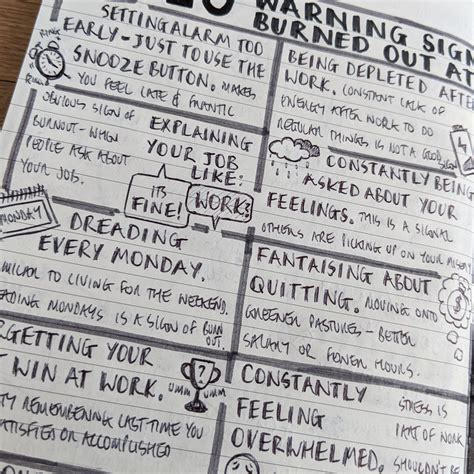 WARNING SIGN
BURNED OUT AT
SETTING ALARM TOO
EARLY - JUST TO USE THE
SNOOZE BUTTON. MAKES
YOU FEEL LATE & FRANTIC
OBVIOUS SIGN OF
BURNOUT - WHEN
PEOPLE ASK ABOUT
YOUR JOB.
EXPLAINING
YOUR JOB
LIKE:
IT'S
FINE!
WORK?
MONDAY
DREADING
EVERY MONDAY.
TO LIVING FOR THE WEEKEND.
EADING MONDAYS IS A SIGN OF BURN
OUT.
RGETTING YOUR
T WIN AT WORK.
UMM
UMM
TY REMEMBERING LAST TIME YOU
ATISFIED OR ACCOMPLISHED
BEING DEPLETED AFTE
WORK. CONSTANT LACK OF
ENERGY AFTER WORK TO DO
REGULAR THINGS IS NOT A GOOD SIGN
CONSTANTLY BEING
ASKED ABOUT YOUR
FEELINGS. THIS IS A SIGNAL
OTHERS ARE PICKING UP ON YOUR MISER
FANTAISING ABOUT
QUITTING. MOVING ONTO
GREENER PASTURES - BETTER
SALARY OR FEWER HOURS.
CONSTANTLY
FEELING
OVERWHELMED.
STRESS IS
PART OF WORK
SHOULDN'T BE